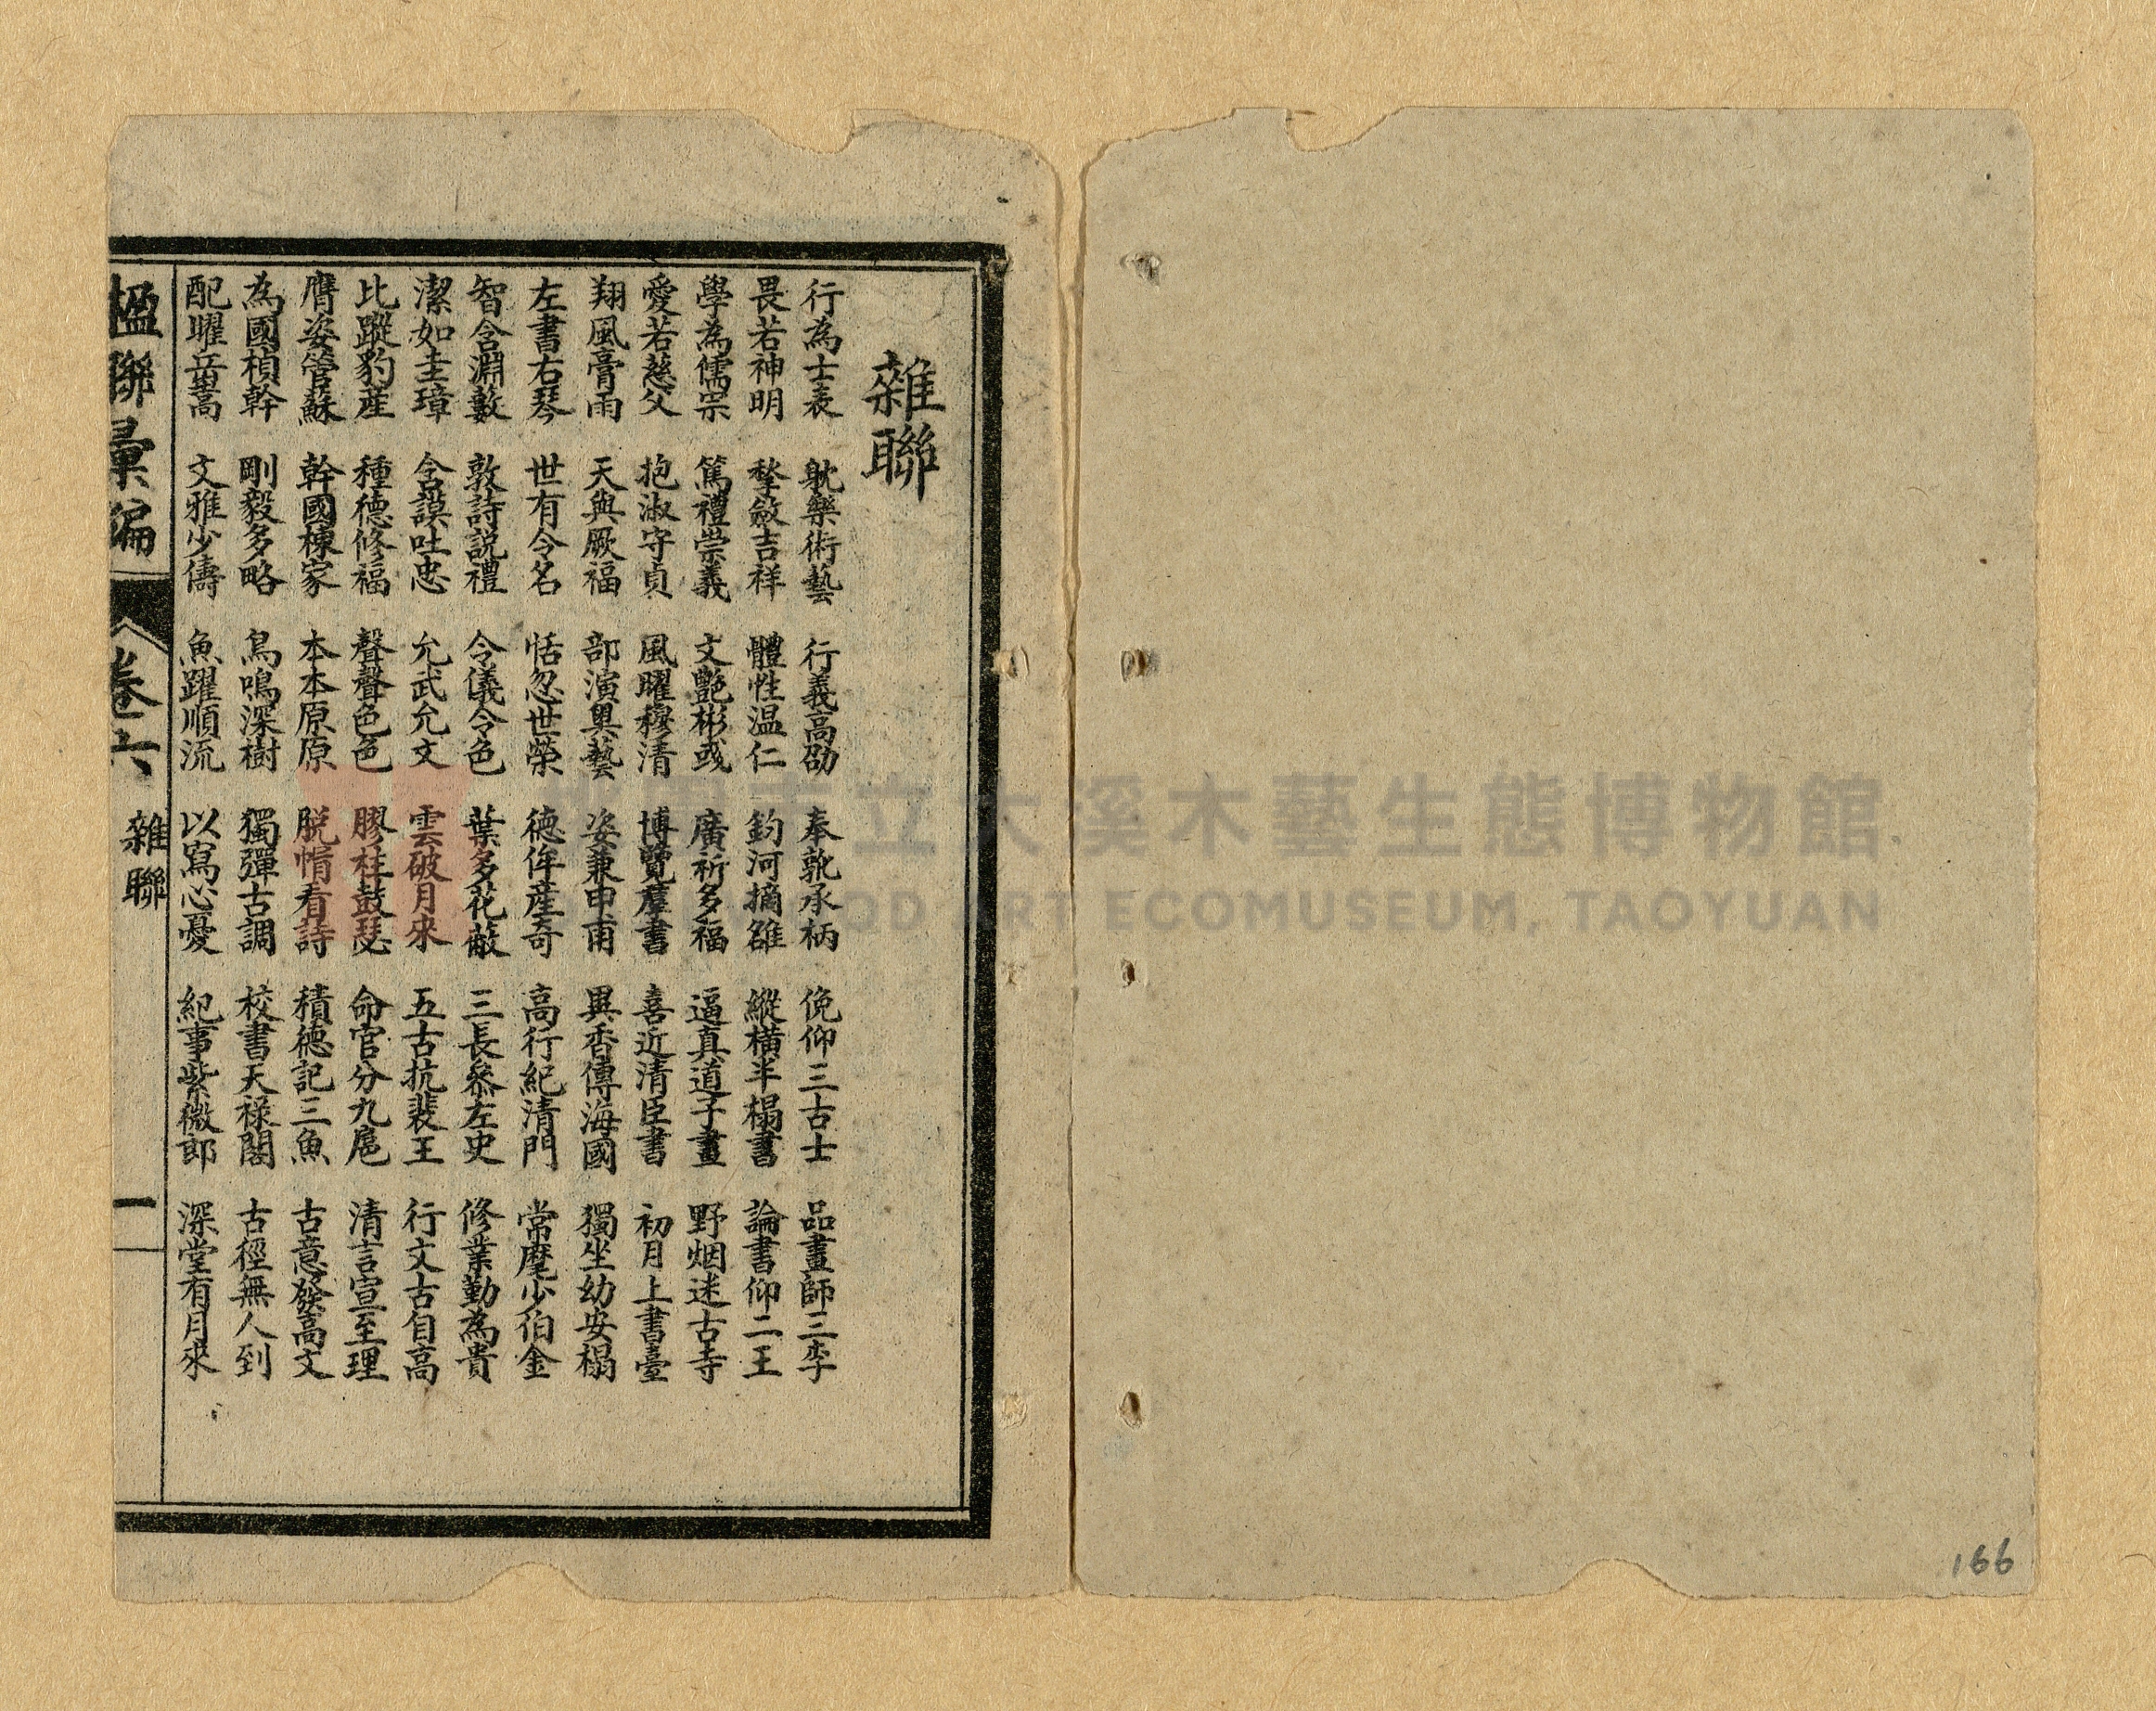 雜聯
行為士表 躭樂術藝 行義高劭 奉䡄承柄 俛仰三古士 品畫師三李
畏若神明 整斂吉祥 體性温仁 鈞河摘雒 縱橫半榻書 論書仰二王
學為儒宗 篤禮崇義 文艷彬彧 廣祈多福 逼真道子畫 野烟迷古寺
愛若慈父 抱淑守貞 風曜穆清 博覽羣書 喜近清臣書 初月上書臺
翔風膏雨 天與厥福 部演奥藝 姿兼申甫 異香傳海國 獨坐幼安榻
左書右琴 世有令名 恬忽世榮 德侔産奇 高行紀清門 常麾少伯金
智含淵藪 敦詩説禮 令儀令色 葉多花蔽 三長參左史 修業勤為貴
潔如圭璋 含謨吐忠 允武允文 雲破月來 五古抗裴王 行文古自高
比蹤豹産 種德修福 聲聲色色 膠柱鼓瑟 命官分九扈 清言宣至理
膺姿管蘇 幹國棟家 本本原原 脱惰看詩 積德記三魚 古意發高文
為國楨幹 剛毅多略 鳥鳴深樹 獨彈古調 校書天禄閣 古徑無人到
配曜岳嵩 文雅少儔 魚躍順流 以寫心憂 紀事紫薇郎 深堂有月來
楹聯彙編 卷六 雜聯 一
桃園市立大溪木藝生態博物館
WOOD ART ECOMUSEUM, TAOYUAN
166